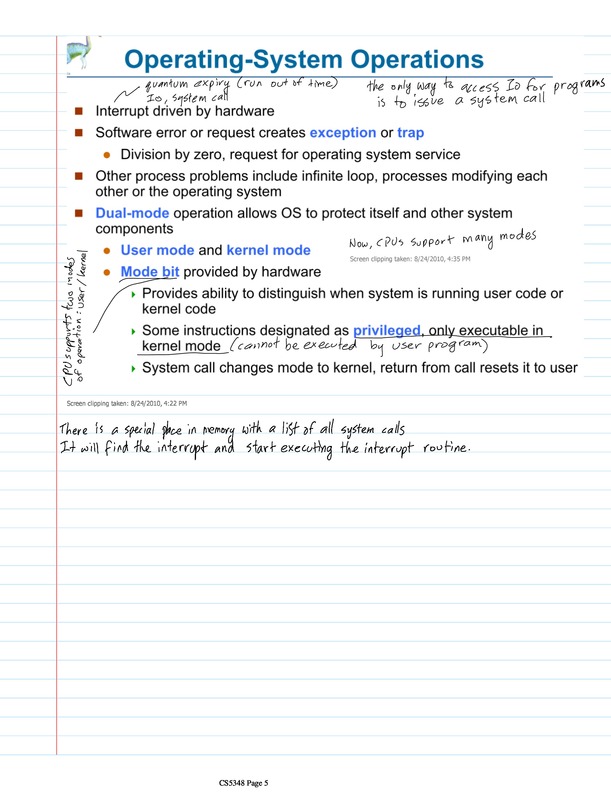 Operating-System Operations
quantum expiry (run out of time)
Io, system call
the only way to access Io for programs
is to issue a system call
Interrupt driven by hardware
Software error or request creates exception or trap
Division by zero, request for operating system service
Other process problems include infinite loop, processes modifying each
other or the operating system
Dual-mode operation allows OS to protect itself and other system
components
User mode and kernel mode
Now, CPUs support many modes
Screen clipping taken: 8/24/2010, 4:35 PM
Mode bit provided by hardware
CPU supports two modes
of operation: user/kernel
Provides ability to distinguish when system is running user code or
kernel code
Some instructions designated as privileged, only executable in
kernel mode (cannot be executed by user program)
System call changes mode to kernel, return from call resets it to user
Screen clipping taken: 8/24/2010, 4:22 PM
There is a special place in memory with a list of all system calls
It will find the interrupt and start executing the interrupt routine.
CS5348 Page 5